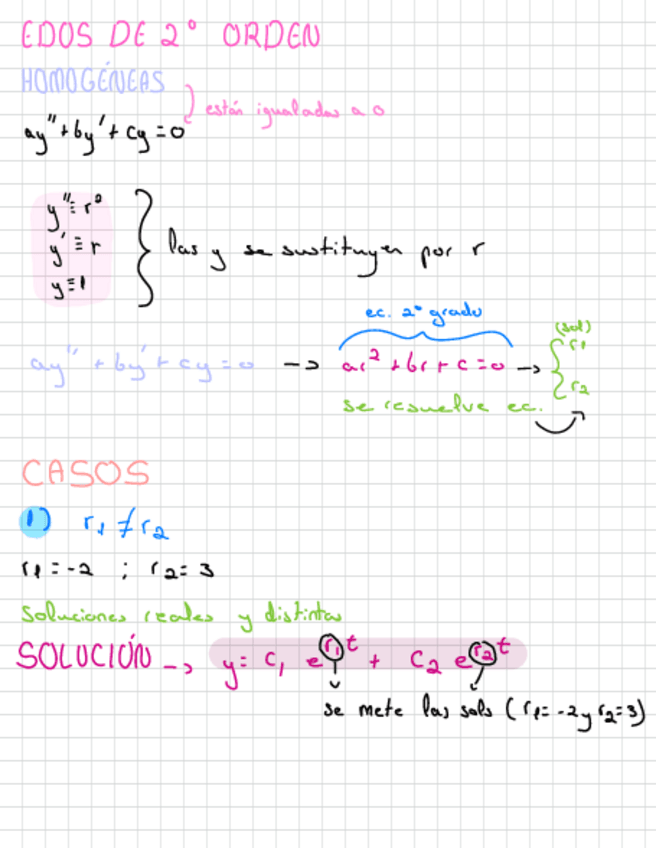 EDOS DE 2° ORDEN
HOMOGÉNEAS
están igualadas a 0
ay'' + by' + cy = 0
y'' ≡ r²
y' ≡ r
y ≡ 1
las y se sustituyen por r
ec. 2° grado
ay'' + by' + cy = 0 → ar² + br + c = 0 → { r1 r2 (sol)
se resuelve ec.
CASOS
1) r1 ≠ r2
r1 = -2 ; r2 = 3
Soluciones reales y distintas
SOLUCIÓN → y = C1 e^r1t + C2 e^r2t
se mete las sols (r1 = -2 y r2 = 3)